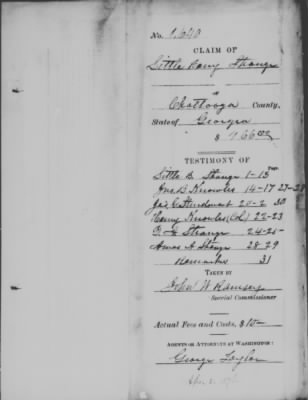 No. 1,640
CLAIM OF
Little Berry Strange
of
Chattooga County,
State of Georgia
$ 766.00
TESTIMONY OF
Page.
Little B. Strange 1-13
Jno. B. Knowles 14-17 27-28
Jas. C. Sturdivant 20-2 30
Henry Knowles (Col.) 22-23
Strange 24-25
Amos A. Strange 28-29
Remarks 31
TAKEN BY
John W. Ramsey
Special Commissioner
Actual Fees and Costs, $10—
AGENTS OR ATTORNEYS AT WASHINGTON:
George Taylor